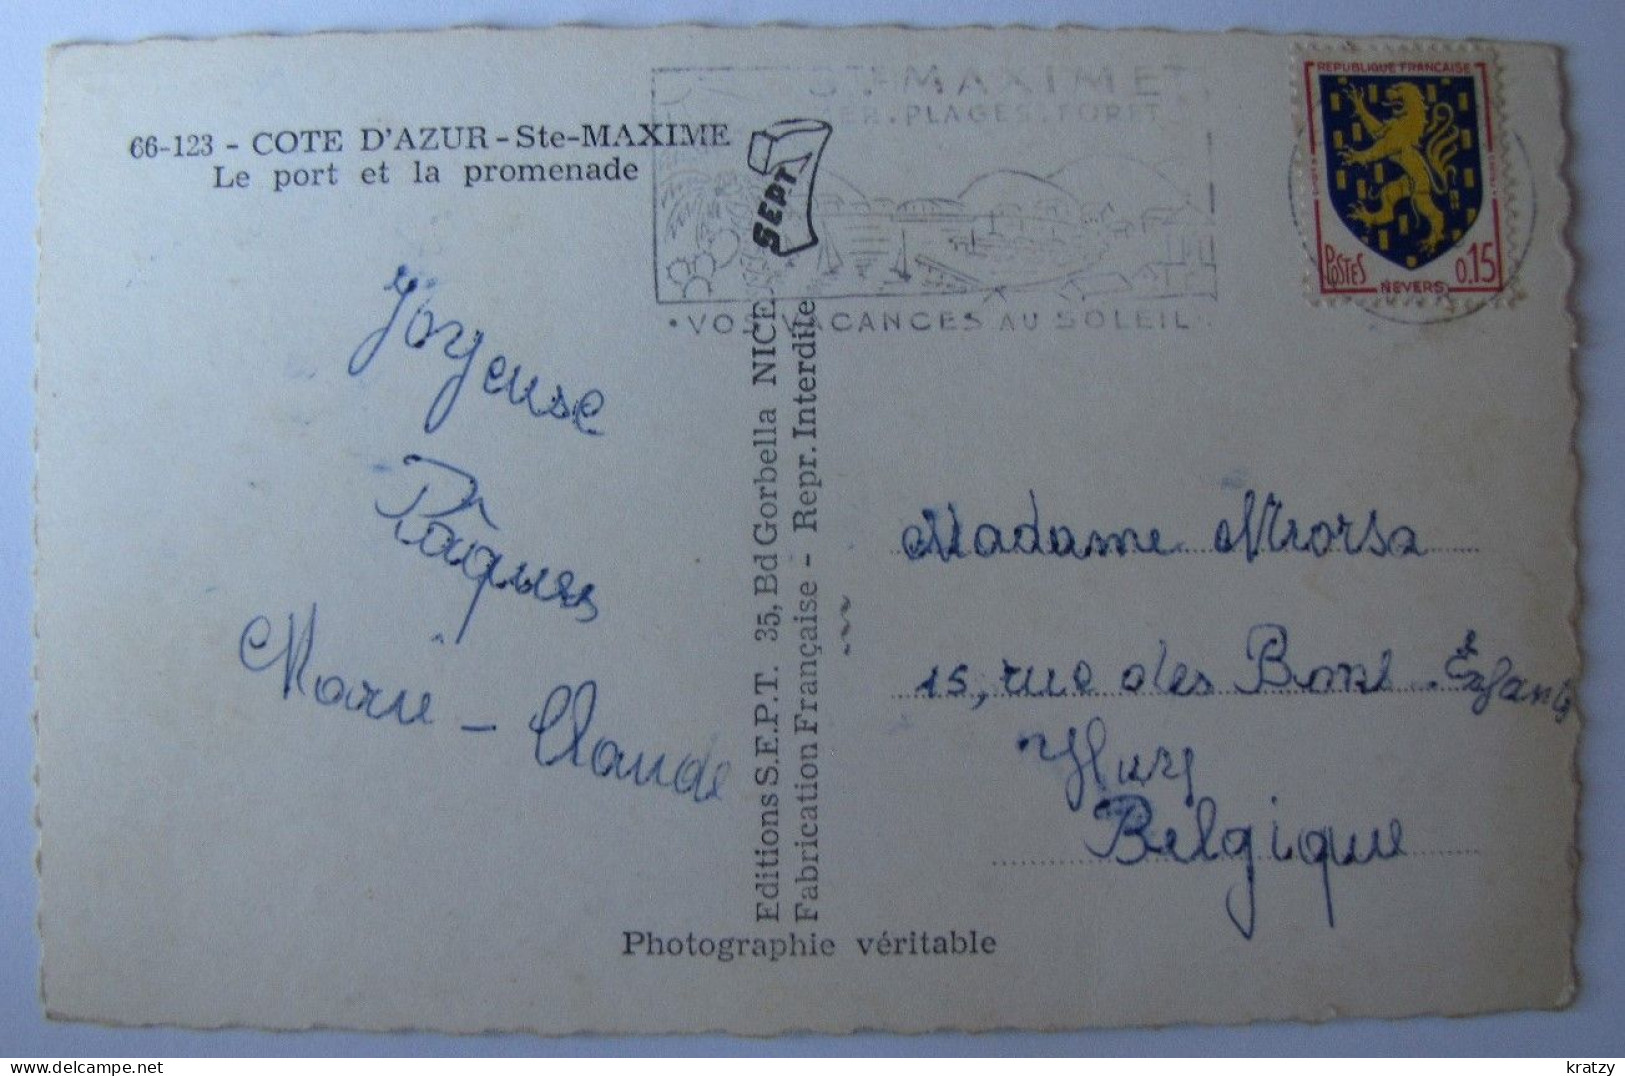 66-123 - COTE D'AZUR - Ste-MAXIME
Le port et la promenade
STE-MAXIME
MER. PLAGES. FORET
• VOS VACANCES AU SOLEIL
SEPT
REPUBLIQUE FRANÇAISE
POSTES
0,15
NEVERS
Joyeuse
Pâques
Marie-Claude
Editions S.E.P.T. 35, Bd Gorbella NICE
Fabrication Française - Repr. Interdite
Madame
15, rue des Bons-Enfants
Huy
Belgique
Photographie véritable
kratzy
delcampe.net